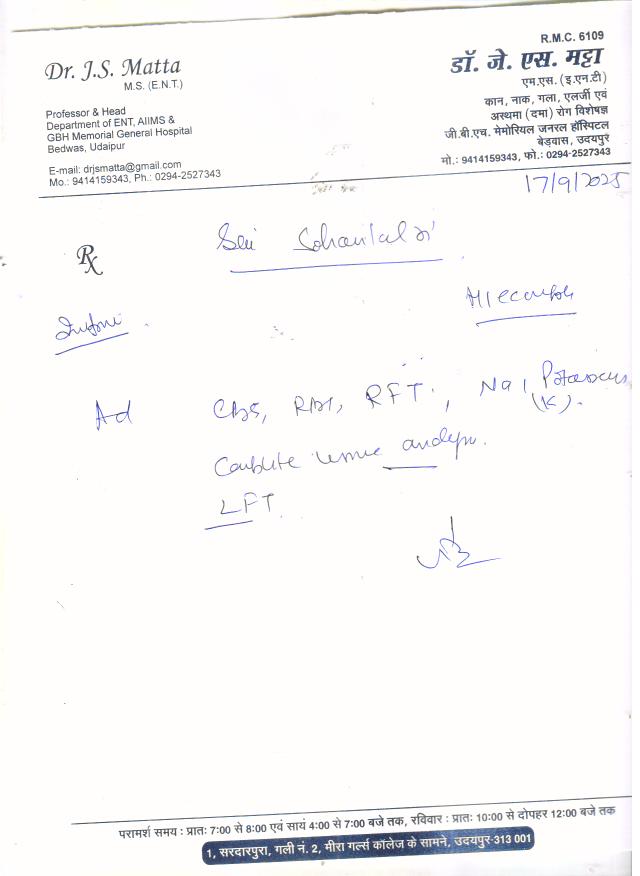 R.M.C. 6109
Dr. J.S. Matta
M.S. (E.N.T.)
Professor & Head
Department of ENT, AIIMS &
GBH Memorial General Hospital
Bedwas, Udaipur
E-mail: drjsmatta@gmail.com
Mo.: 9414159343, Ph.: 0294-2527343
डॉ. जे. एस. मट्टा
एम.एस. (इ.एन.टी)
कान, नाक, गला, एलर्जी एवं
अस्थमा (दमा) रोग विशेषज्ञ
जी.बी.एच. मेमोरियल जनरल हॉस्पिटल
बेड़वास, उदयपुर
मो.: 9414159343, फो.: 0294-2527343
17/9/2025
Rx
Ad
RFT, Na, Potassium
(K).
LFT.
परामर्श समय : प्रातः 7:00 से 8:00 एवं सायं 4:00 से 7:00 बजे तक, रविवार : प्रातः 10:00 से दोपहर 12:00 बजे तक
1, सरदारपुरा, गली नं. 2, मीरा गर्ल्स कॉलेज के सामने, उदयपुर-313 001